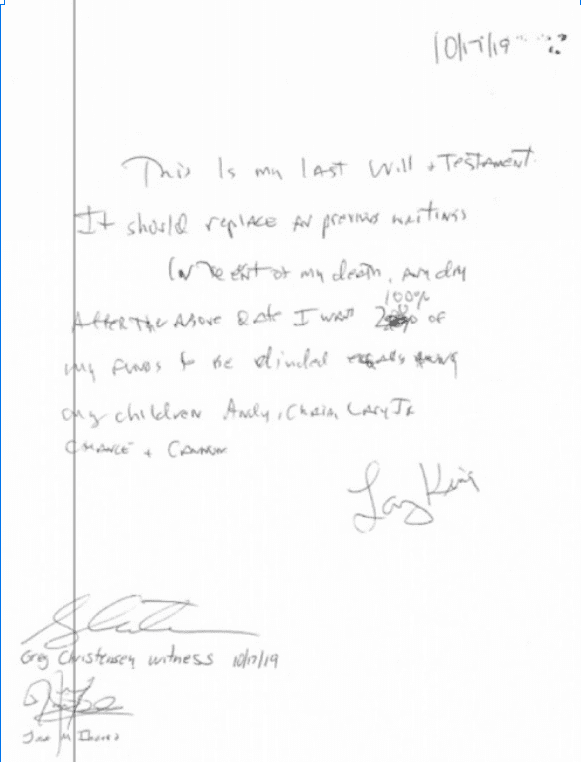 10/17/19
This Is my last Will + Testament.
It should replace all previous writings
In the event of my death, any day
After the Above Date I want 100% of
my funds to be divided equally among
my children Andy, Chaia, Larry Jr
Chance + Cannon
Larry King
Greg Christensen witness 10/17/19